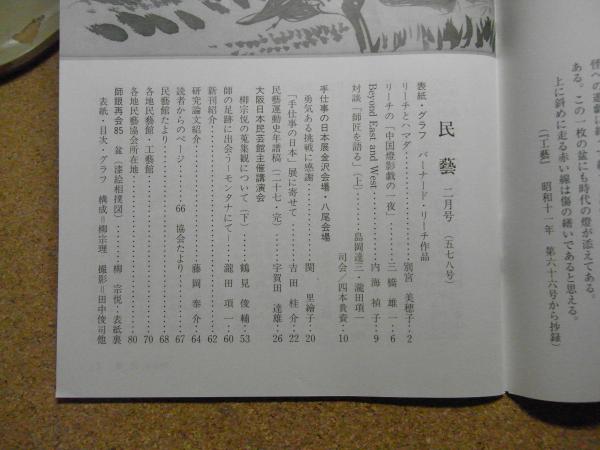 誉への遊戯に
ある。この一枚の盆にも時代の燈が添えてある。
上に斜めに走る赤い線は傷の繕いであると思える。
（『工藝』 昭和十一年 第六十六号から抄録）
民藝 二月号（五七八号）
表紙・グラフ バーナード・リーチ作品
リーチとハマダ……別宮 美穂子・2
リーチの「中国燈影戯の一夜」……三橋 雄一・6
Beyond East and West……内海 禎子・9
対談『師匠を語る』（上）……島岡達三・瀧田項一
司会／四本貴資・10
手仕事の日本展金沢会場・八尾会場
勇気ある挑戦に感謝……関 里繪子・20
「手仕事の日本」展に寄せて……吉田 桂介・22
民藝運動史年譜稿（二十七・完）……宇賀田 達雄・26
大阪日本民芸館主催講演会
柳宗悦の蒐集観について（下）……鶴見 俊輔・53
師の足跡に出会う―モンタナにて―……瀧田 項一・60
新刊紹介……62
研究論文紹介……藤岡 泰介・64
読者からのページ……66 協会だより……67
民藝館だより……68
各地民藝館・工藝館……70
各地民藝協会所在地……80
師眼再会85 盆（漆絵相撲図）……柳 宗悦・表紙裏
表紙・目次・グラフ 構成＝柳宗理 撮影＝田中俊司他